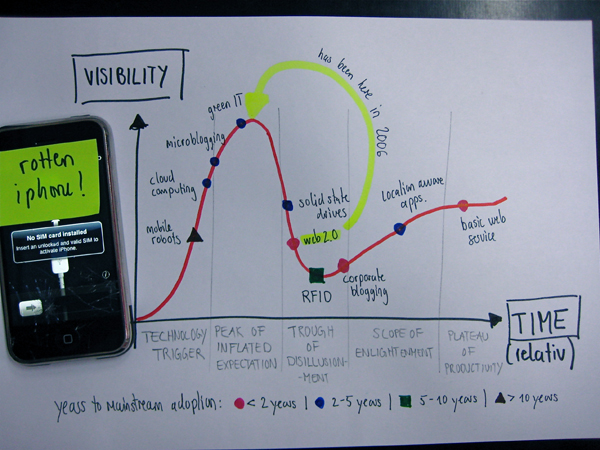 VISIBILITY
has been here in 2006
green IT
microblogging
cloud
computing
mobile
robots
solid state
drives
web 2.0
RFID
corporate
blogging
Location aware
apps.
basic web
service
rotten
iphone!
No SIM card installed
Insert an unlocked and valid SIM to
activate iPhone.
TECHNOLOGY
TRIGGER
PEAK OF
INFLATED
EXPECTATION
TROUGH
OF
DISILLUSION-
-MENT
SCOPE OF
ENLIGHTENMENT
PLATEAU
OF
PRODUCTIVITY
TIME
(relativ)
years to mainstream adoption: < 2 years | 2-5 years | 5-10 years | > 10 years